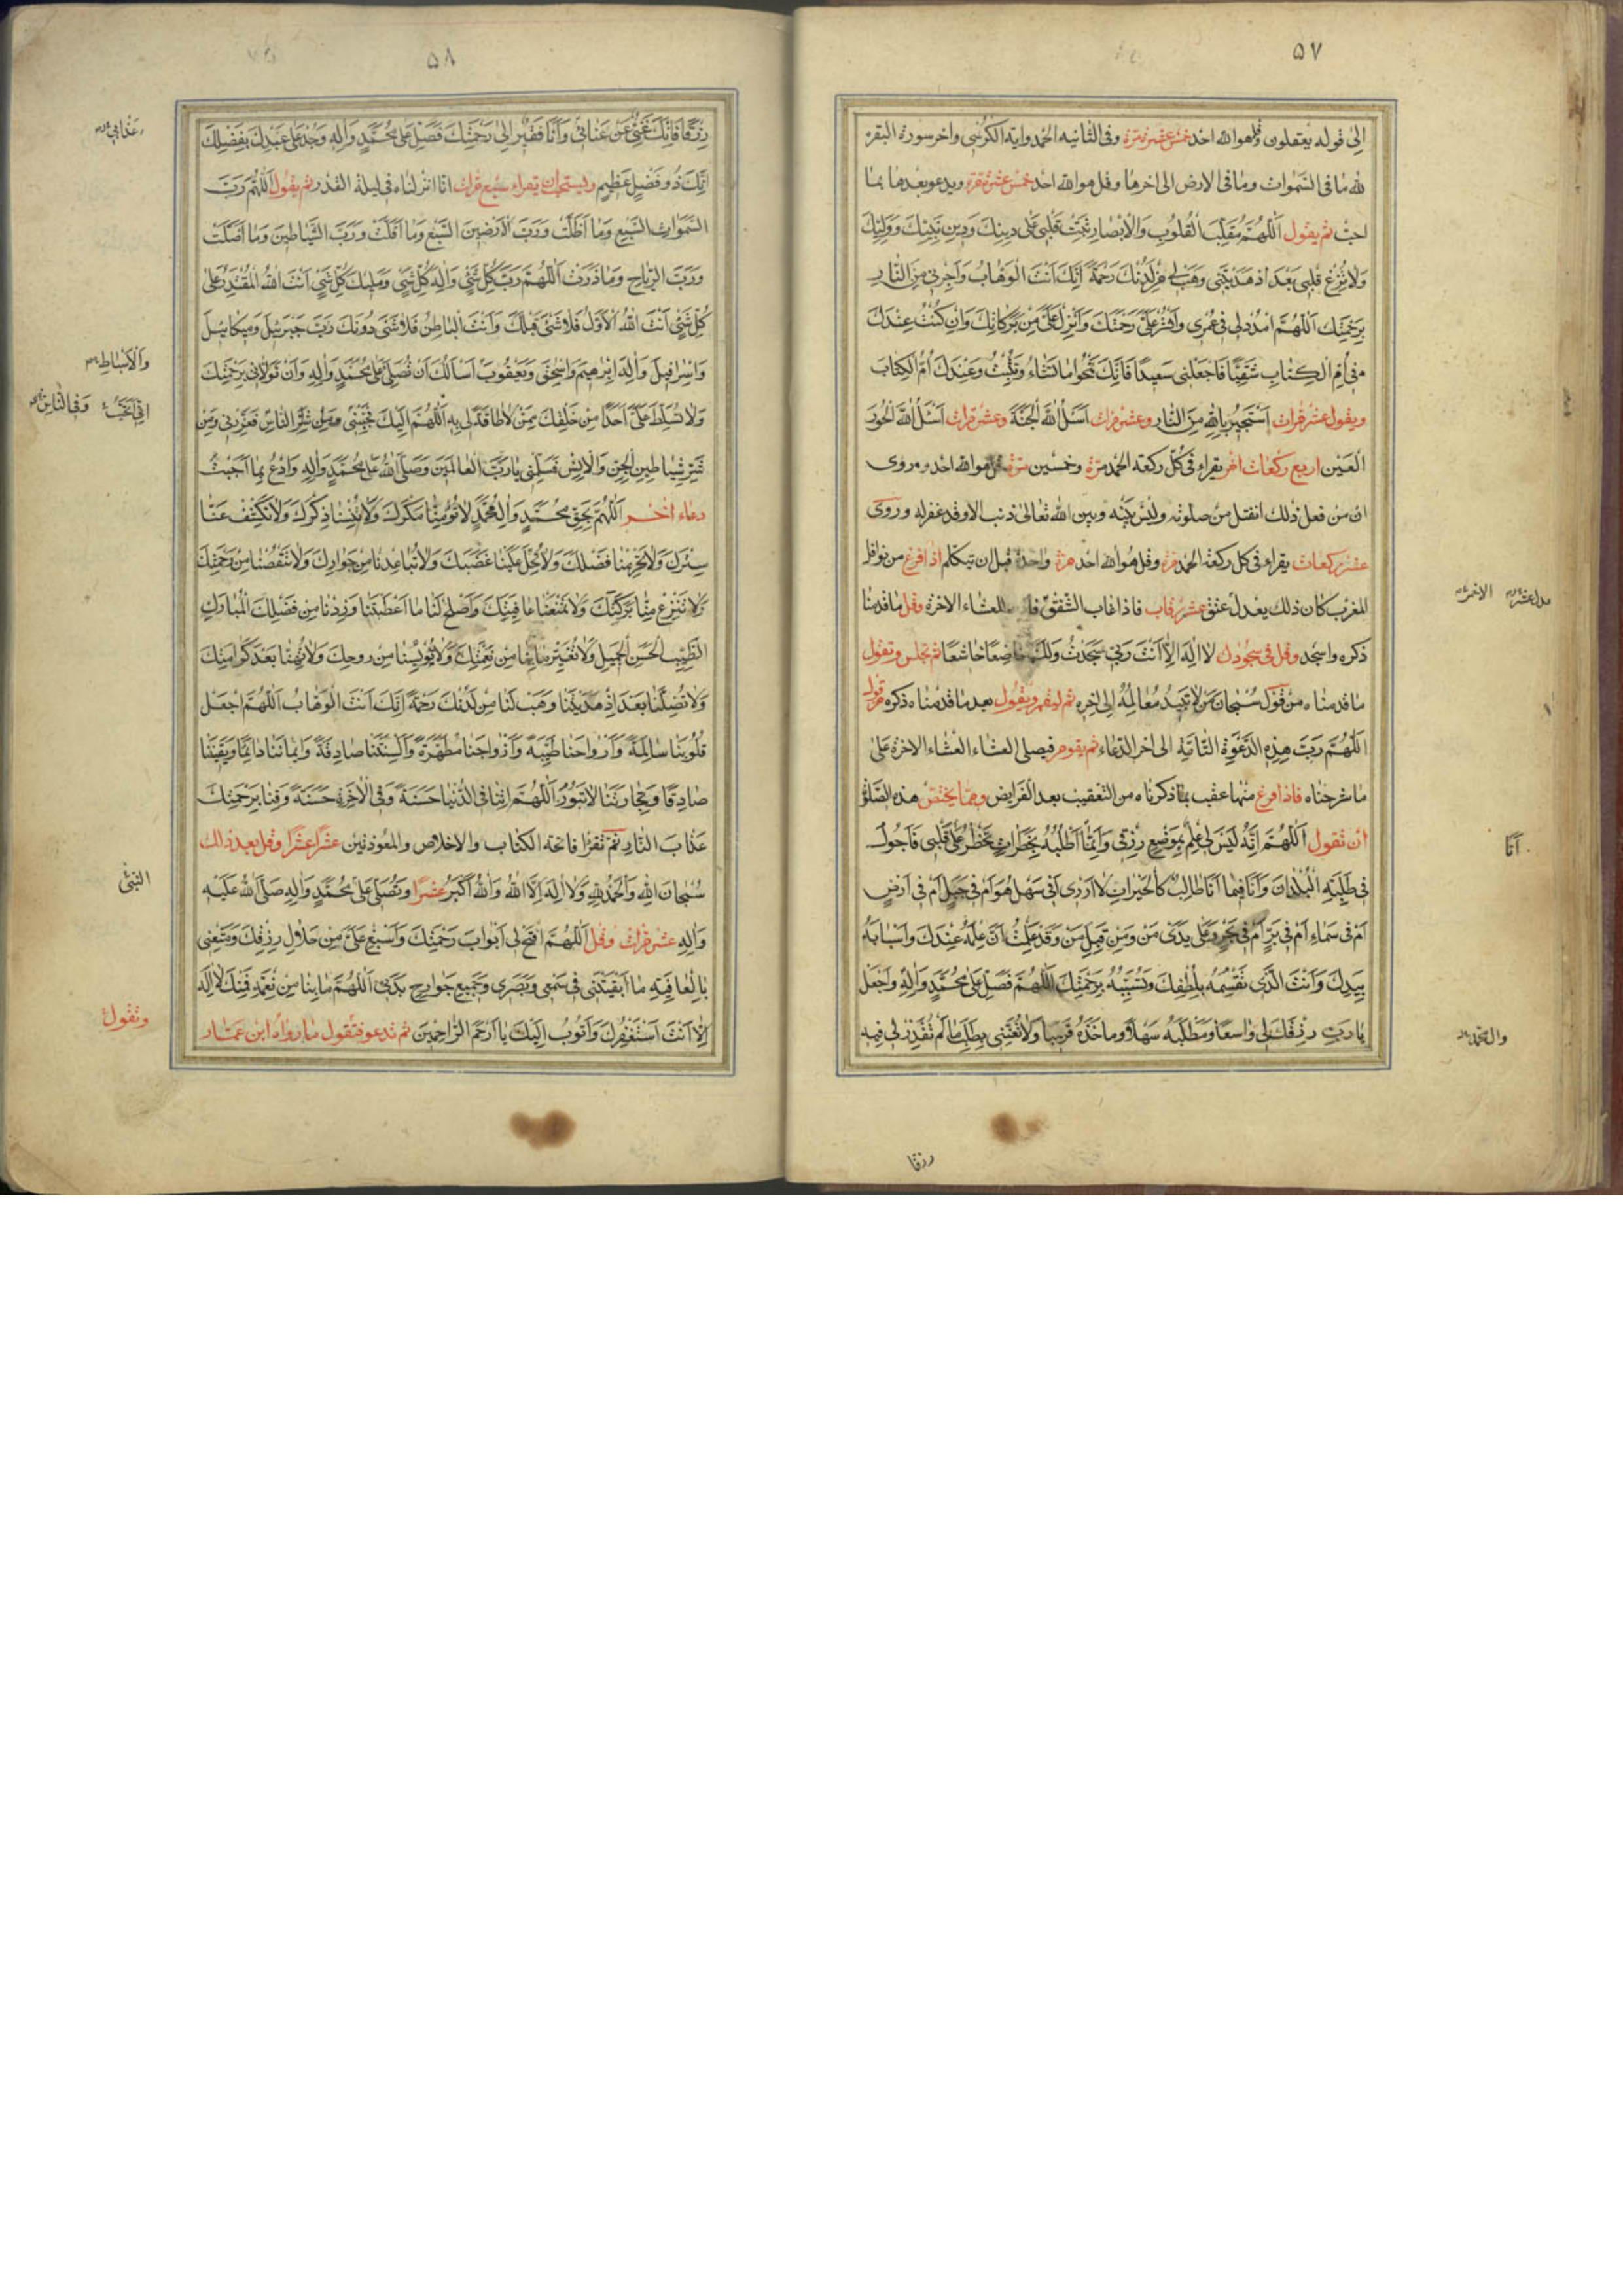 ٥٧
الى قوله يعقلون وقل هو الله احد خمس عشرة مرة وفى الثانيه الحمد وايه الكرسى واخر سورة البقره
لله ما فى السموات وما فى الارض الى اخرها وقل هو الله احد خمس عشرة مرة ويدعو بعدها بما
احب ثم يقول اَللّهُمَّ مُقَلِّبَ الْقُلُوبِ وَالْاَبْصارِ ثَبِّتْ قَلْبى عَلى دينِكَ وَدينِ نَبِيِّكَ وَوَلِيِّكَ
وَلا تُزِغْ قَلْبى بَعْدَ اِذْ هَدَيْتَنى وَهَبْ لى مِنْ لَدُنْكَ رَحْمَةً اِنَّكَ اَنْتَ الْوَهّابُ وَاَجِرْنى مِنَ النّارِ
بِرَحْمَتِكَ اَللّهُمَّ امْدُدْ لى فى عُمْرى وَانْشُرْ عَلَىَّ رَحْمَتَكَ وَاَنْزِلْ عَلَىَّ مِنْ بَرَكاتِكَ وَاِنْ كُنْتُ عِنْدَكَ
فى اُمِّ الْكِتابِ شَقِيًّا فَاجْعَلْنى سَعيدًا فَاِنَّكَ تَمْحُوا ما تَشاءُ وَتُثْبِتُ وَعِنْدَكَ اُمُّ الْكِتابِ
ويقول عشر مرات اَسْتَجيرُ بِاللهِ مِنَ النّارِ وعشر مرات اَسْئَلُ اللهَ الْجَنَّةَ وعشر مرات اَسْئَلُ اللهَ الْحُورَ
الْعينَ اربع ركعات اخر يقراء فى كل ركعة الحمد مرة وخمسين مرة قل هو الله احد وروى
ان من فعل ذلك انفتل من صلوته وليس بينه وبين الله تعالى ذنب الا وقد غفر له وروى
عشر ركعات يقراء فى كل ركعة الحمد مرة وقل هو الله احد مرة واحدة قبل ان يتكلم اذا فرغ من نوافل
المغرب كان ذلك يعدل عتق عشر رقاب فاذا غاب الشفق للعشاء الاخرة وقل ما قدمنا
ذكره واسجد وقل فى سجودك لا اِلهَ اِلاّ اَنْتَ رَبّى سَجَدْتُ لَكَ خاضِعًا خاشِعًا ثم تجلس وتقول
ما قدمناه من قولك سُبْحانَ مَنْ لا تَبيدُ مَعالِمُهُ الى اخره ثم ليقم ويقول بعد ما قدمناه ذكره من قول
اَللّهُمَّ رَبَّ هذِهِ الدَّعْوَةِ التّامَّةِ الى اخر الدعاء ثم يقوم فيصلى العشاء الاخرة على
ما شرحناه فاذا فرغ منها عقب بما ذكرناه من التعقيب بعد الفرايض ومما يختص هذه الصلوة
ان تقول اَللّهُمَّ اِنَّهُ لَيْسَ لى عِلْمٌ بِمَوْضِعِ رِزْقى وَاِنَّما اَطْلُبُهُ بِخَطَراتٍ تَخْطُرُ عَلى قَلْبى فَاَجُولُ
فى طَلَبِهِ الْبُلْدانَ وَاَنَا فيما اَنَا طالِبٌ كَالْحَيْرانِ لا اَدْرى اَفى سَهْلٍ هُوَ اَمْ فى جَبَلٍ اَمْ فى اَرْضٍ
اَمْ فى سَماءٍ اَمْ فى بَرٍّ اَمْ فى بَحْرٍ وَعَلى يَدَىْ مَنْ وَمِنْ قِبَلِ مَنْ وَقَدْ عَلِمْتُ اَنَّ عِلْمَهُ عِنْدَكَ وَاَسْبابَهُ
بِيَدِكَ وَاَنْتَ الَّذى تَقْسِمُهُ بِلُطْفِكَ وَتُسَبِّبُهُ بِرَحْمَتِكَ اَللّهُمَّ فَصَلِّ عَلى مُحَمَّدٍ وَالِهِ وَاجْعَلْ
يا رَبِّ رِزْقَكَ لى واسِعًا وَمَطْلَبَهُ سَهْلاً وَمَاْخَذَهُ قَريبًا وَلا تُعَنِّنى بِطَلَبِ ما لَمْ تُقَدِّرْ لى فيهِ
الاخرة
اَنَا
وال محمد
رزقا
٥٨
رِزْقًا فَاِنَّكَ غَنِىٌّ عَنْ عَنائى وَاَنَا فَقيرٌ اِلى رَحْمَتِكَ فَصَلِّ عَلى مُحَمَّدٍ وَالِهِ وَجُدْ عَلى عَبْدِكَ بِفَضْلِكَ
اِنَّكَ ذُو فَضْلٍ عَظيمٍ ويستحب ان يقراء سبع مرات انا انزلناه فى ليلة القدر ثم يقول اَللّهُمَّ رَبَّ
السَّمواتِ السَّبْعِ وَما اَظَلَّتْ وَرَبَّ الْاَرَضينَ السَّبْعِ وَما اَقَلَّتْ وَرَبَّ الشَّياطينِ وَما اَضَلَّتْ
وَرَبَّ الرِّياحِ وَما ذَرَتْ اَللّهُمَّ رَبَّ كُلِّ شَىْءٍ وَاِلهَ كُلِّ شَىْءٍ وَمَليكَ كُلِّ شَىْءٍ اَنْتَ اللهُ الْمُقْتَدِرُ عَلى
كُلِّ شَىْءٍ اَنْتَ اللهُ الْاَوَّلُ فَلا شَىْءَ قَبْلَكَ وَاَنْتَ الْباطِنُ فَلا شَىْءَ دُونَكَ رَبَّ جَبْرَئيلَ وَميكائيلَ
وَاِسْرافيلَ وَاِلهَ اِبْرهيمَ وَاِسْحقَ وَيَعْقُوبَ اَسْاَلُكَ اَنْ تُصَلِّىَ عَلى مُحَمَّدٍ وَالِهِ وَاَنْ تَوَلاّنى بِرَحْمَتِكَ
وَلا تُسَلِّطْ عَلَىَّ اَحَدًا مِنْ خَلْقِكَ مِمَّنْ لا طاقَةَ لى بِهِ اَللّهُمَّ اِلَيْكَ فَحَبِّبْنى وَمِنْ شَرِّ النّاسِ فَعَزِّزْنى وَمِنْ
شَرِّ شَياطينِ الْجِنِّ وَالْاِنْسِ فَسَلِّمْنى يا رَبَّ الْعالَمينَ وَصَلَّى اللهُ عَلى مُحَمَّدٍ وَالِهِ وَادْعُ بِما اَحْبَبْتَ
دعاء اخر اَللّهُمَّ بِحَقِّ مُحَمَّدٍ وَالِ مُحَمَّدٍ لا تُؤْمِنّا مَكْرَكَ وَلا تُنْسِنا ذِكْرَكَ وَلا تَكْشِفْ عَنّا
سِتْرَكَ وَلا تَحْرِمْنا فَضْلَكَ وَلا تُحِلَّ عَلَيْنا غَضَبَكَ وَلا تُباعِدْنا مِنْ جِوارِكَ وَلا تَنْقُصْنا مِنْ رَحْمَتِكَ
وَلا تَنْزِعْ مِنّا بَرَكَتَكَ وَلا تَمْنَعْنا عافِيَتَكَ وَاَصْلِحْ لَنا ما اَعْطَيْتَنا وَزِدْنا مِنْ فَضْلِكَ الْمُبارَكِ
الطَّيِّبِ الْحَسَنِ الْجَميلِ وَلا تُغَيِّرْ ما بِنا مِنْ نِعْمَتِكَ وَلا تُؤْيِسْنا مِنْ رَوْحِكَ وَلا تُهِنّا بَعْدَ كَرامَتِكَ
وَلا تُضِلَّنا بَعْدَ اِذْ هَدَيْتَنا وَهَبْ لَنا مِنْ لَدُنْكَ رَحْمَةً اِنَّكَ اَنْتَ الْوَهّابُ اَللّهُمَّ اجْعَلْ
قُلُوبَنا سالِمَةً وَاَرْواحَنا طَيِّبَةً وَاَزْواجَنا مُطَهَّرَةً وَاَلْسِنَتَنا صادِقَةً وَايمانَنا دائِمًا وَيَقينَنا
صادِقًا وَتِجارَتَنا لا تَبُورُ اَللّهُمَّ اتِنا فِى الدُّنْيا حَسَنَةً وَفِى الْاخِرَةِ حَسَنَةً وَقِنا بِرَحْمَتِكَ
عَذابَ النّارِ ثم تقرا فاتحة الكتاب والاخلاص والمعوذتين عشرًا عشرًا وقل بعد ذلك
سُبْحانَ اللهِ وَالْحَمْدُ لِلّهِ وَلا اِلهَ اِلاَّ اللهُ وَاللهُ اَكْبَرُ عشرًا وتصلى على مُحَمَّدٍ وَالِهِ صَلَّى اللهُ عَلَيْهِ
وَالِهِ عشر مرات وقل اَللّهُمَّ افْتَحْ لى اَبْوابَ رَحْمَتِكَ وَاَسْبِغْ عَلَىَّ مِنْ حَلالِ رِزْقِكَ وَمَتِّعْنى
بِالْعافِيَةِ ما اَبْقَيْتَنى فى سَمْعى وَبَصَرى وَجَميعِ جَوارِحِ بَدَنى اَللّهُمَّ ما بِنا مِنْ نِعْمَةٍ فَمِنْكَ لا اِلهَ
اِلاّ اَنْتَ اَسْتَغْفِرُكَ وَاَتُوبُ اِلَيْكَ يا اَرْحَمَ الرّاحِمينَ ثم تدعو فتقول ما رواه ابن عمار
عَذابى
وَالْاَسْباطِ
وَفى النّاسِ
النَّبِىِّ
وتقول